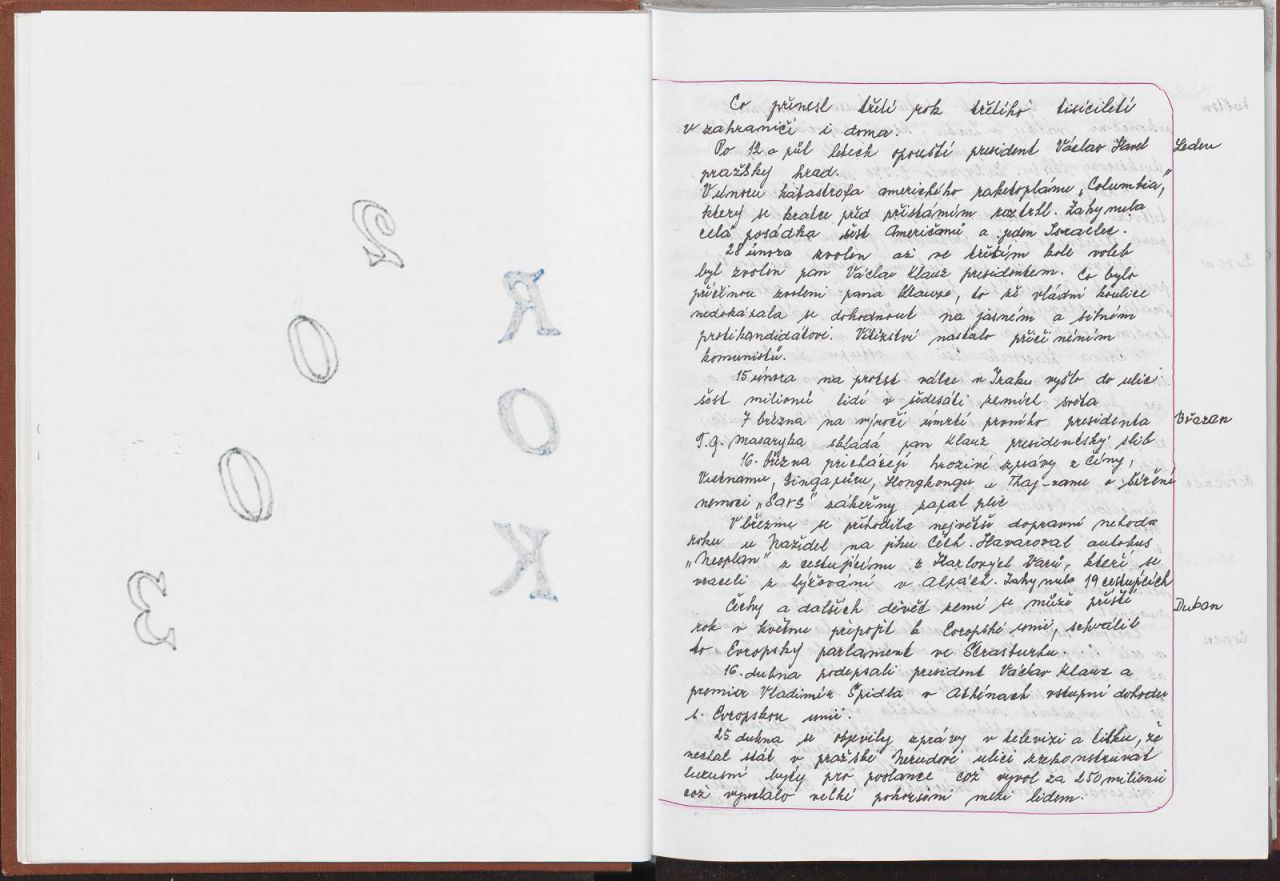 ROK
2003
Co přinesl třetí rok třetího tisíciletí
v zahraničí i doma.
Po 12 a půl letech opouští president Václav Havel
pražský hrad.
Leden
V únoru katastrofa amerického raketoplánu „Columbia,"
který se kratce před přistáním roztrhl. Zahynula
celá posádka šest Američanů a jeden Izraelec.
28 února zvolen až ve třetím kole voleb
byl zvolen pan Václav Klauz presidentem. Co bylo
příčinou zvolení pana Klauze, to že vládní koalice
nedokázala se dohodnout na jasném a silném
protikandidátovi. Vítězství nastalo přičiněním
komunistů.
15 února na protest války v Iraku vyšlo do ulic
šest milionů lidí v šedesáti zemích světa
7 března na výročí úmrtí prvního presidenta
Březen
T.G. Masaryka skládá pan Klauz presidentský slib
16. března přicházejí hrozivé zprávy z Číny,
Vietnamu, Singapůru, Hongkongu a Thaj-vanu o šíření
nemoci „Sars" zákeřný zapal plic
V březnu se přihodila největší dopravní nehoda
roku u Nažidel na jihu Čech. Havaroval autobus
„Neoplan" z cestujícímu z Karlových Varů, kteří se
vraceli z lyžování v Alpách. Zahynulo 19 cestujících
Čechy a dalších devět zemí se může příští
Duben
rok v květnu připojit k Evropské unii, schválil
to Evropský parlament ve Štrasburku.
16. dubna podepsali president Václav Klauz a
premier Vladimír Špidla v Athénách vstupní dohodu
s. Evropskou unií.
25 dubna se objevily zprávy v televizi a tisku, že
nechal stát v pražské Nerudově ulici zrekonstruvat
luxusní byty pro poslance což vyvol za 250 milionů
což vyvolalo velké pohoršení mezi lidem.